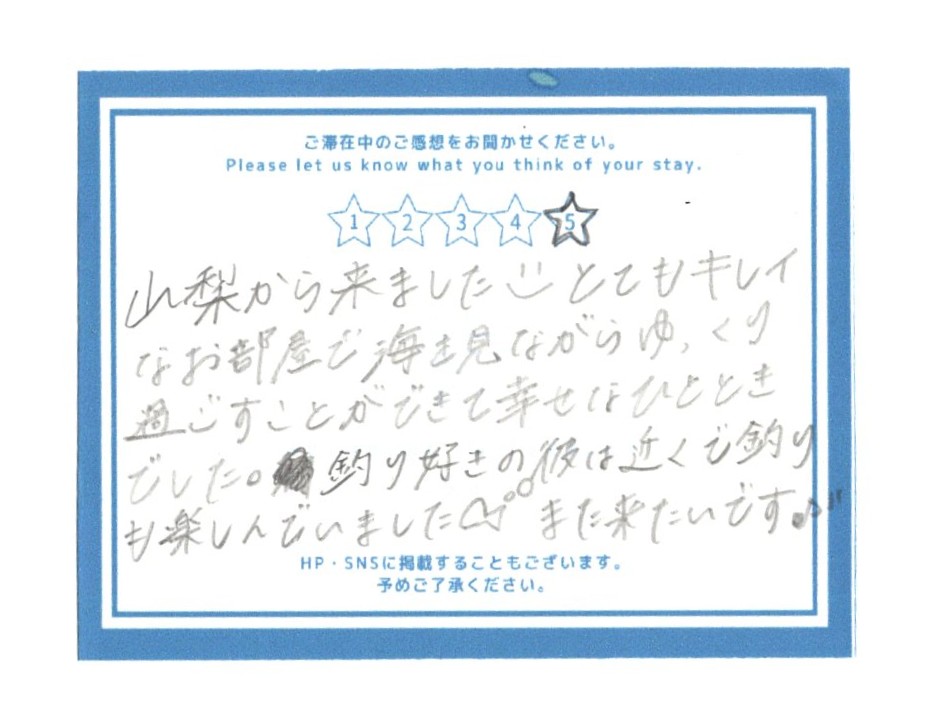 ご滞在中のご感想をお聞かせください。
Please let us know what you think of your stay.
1 2 3 4 5
山梨から来ました とてもキレイ
なお部屋で海を見ながらゆっくり
過ごすことができて幸せなひととき
でした。 釣り好きの彼は近くで釣り
も楽しんでいました また来たいです♪
HP・SNSに掲載することもございます。
予めご了承ください。